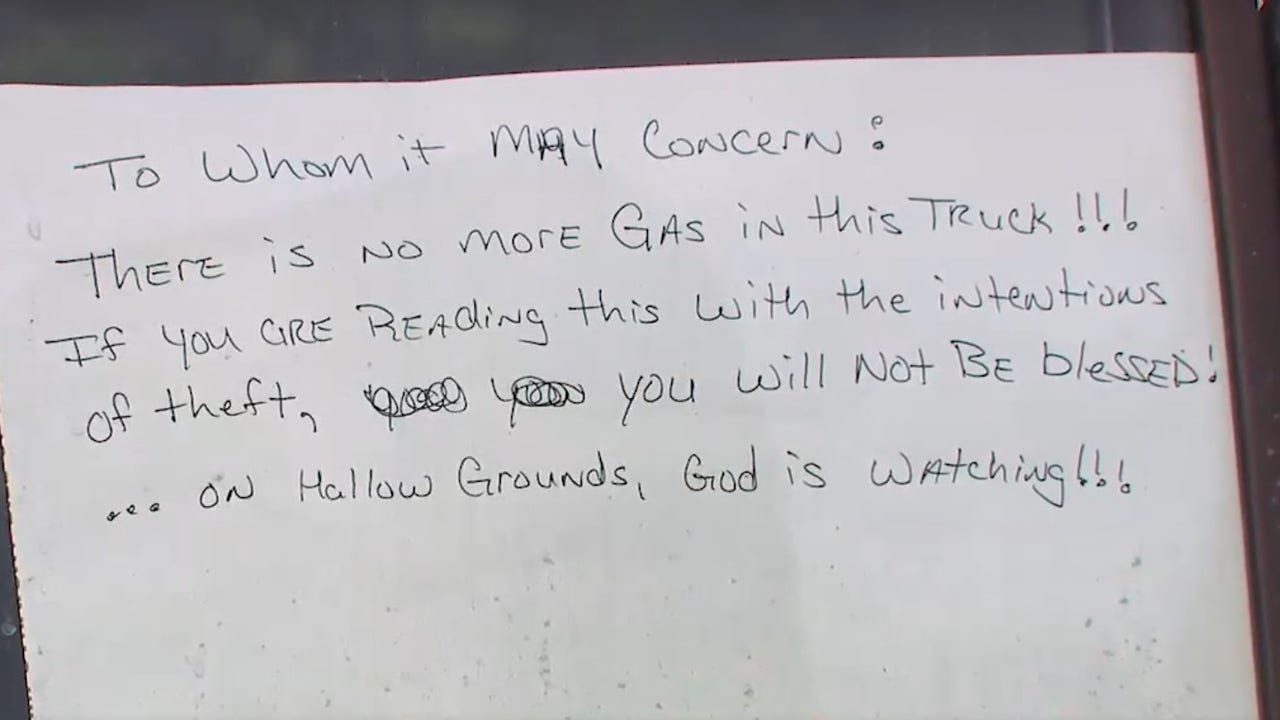 To Whom it MAY Concern:
THErE is NO morE GAS iN this TRuck!!!
If you ARE READiNg this with the intentions
of theft, you will NOT BE blESSED!
... ON Hallow Grounds, God is WAtching!!!